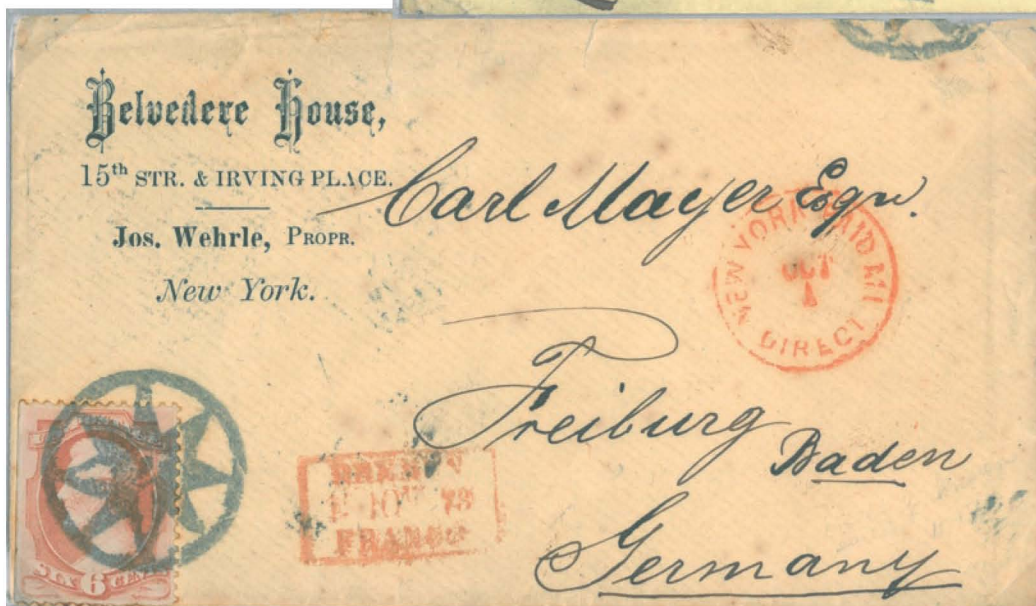 Belvedere House,
15th STR. & IRVING PLACE.
Jos. Wehrle, PROPR.
New York.
Carl Mayer Esqu.
NEW YORK PAID ALL
OCT
1
DIRECT
Freiburg
Baden
Germany
BREMEN
10 73
FRANCO
SIX 6 CENTS